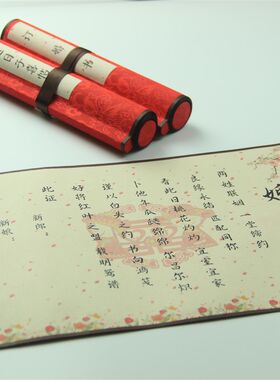 订婚书
日子喜帖
两姓联姻 一堂缔约
良缘永结 匹配同称
看此日桃花灼灼 宜室宜家
卜他年瓜瓞绵绵 尔昌尔炽
谨以白头之约 书向鸿笺
好将红叶之盟 载明鸳谱
此证
新郎
新娘：